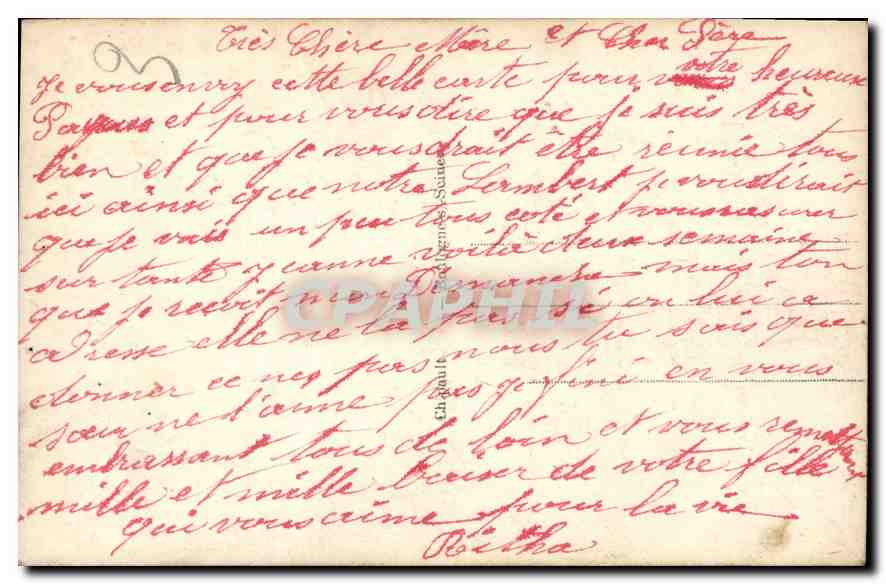 Très Chère Mère et Cher Père
Je vousenvoy cette belle carte pour votre heureux
Paques et pour vous dire que je suis très
bien et que je vousdrait être réunie tous
ici ainsi que notre Lambert je voudirait
que je vais un peu tous coté et vousrasurer
sur tante Jeanne voilà deux semaine
que je recoit mon Dimanche mais ton
adresse elle ne la pas si on lui a
donner ce nes pas nous tu sais que
sœur ne l'aime pas je fini en vous
embrassant tous de loin et vous remettant
mille et mille baiser de votre fille
qui vous aime pour la vie
Ritha
Chapault
Boulogne-s-Seine
CPAPHIL